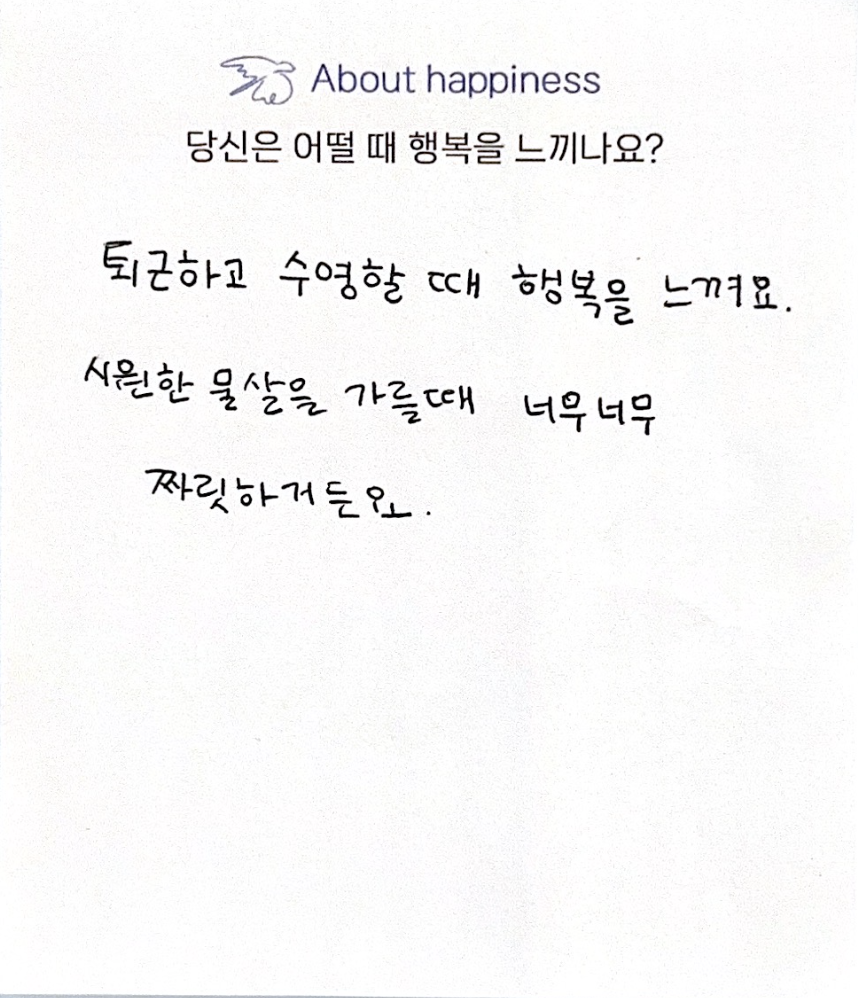 About happiness
당신은 어떨 때 행복을 느끼나요?
퇴근하고 수영할 때 행복을 느껴요.
시원한 물살을 가를때 너무너무
짜릿하거든요.